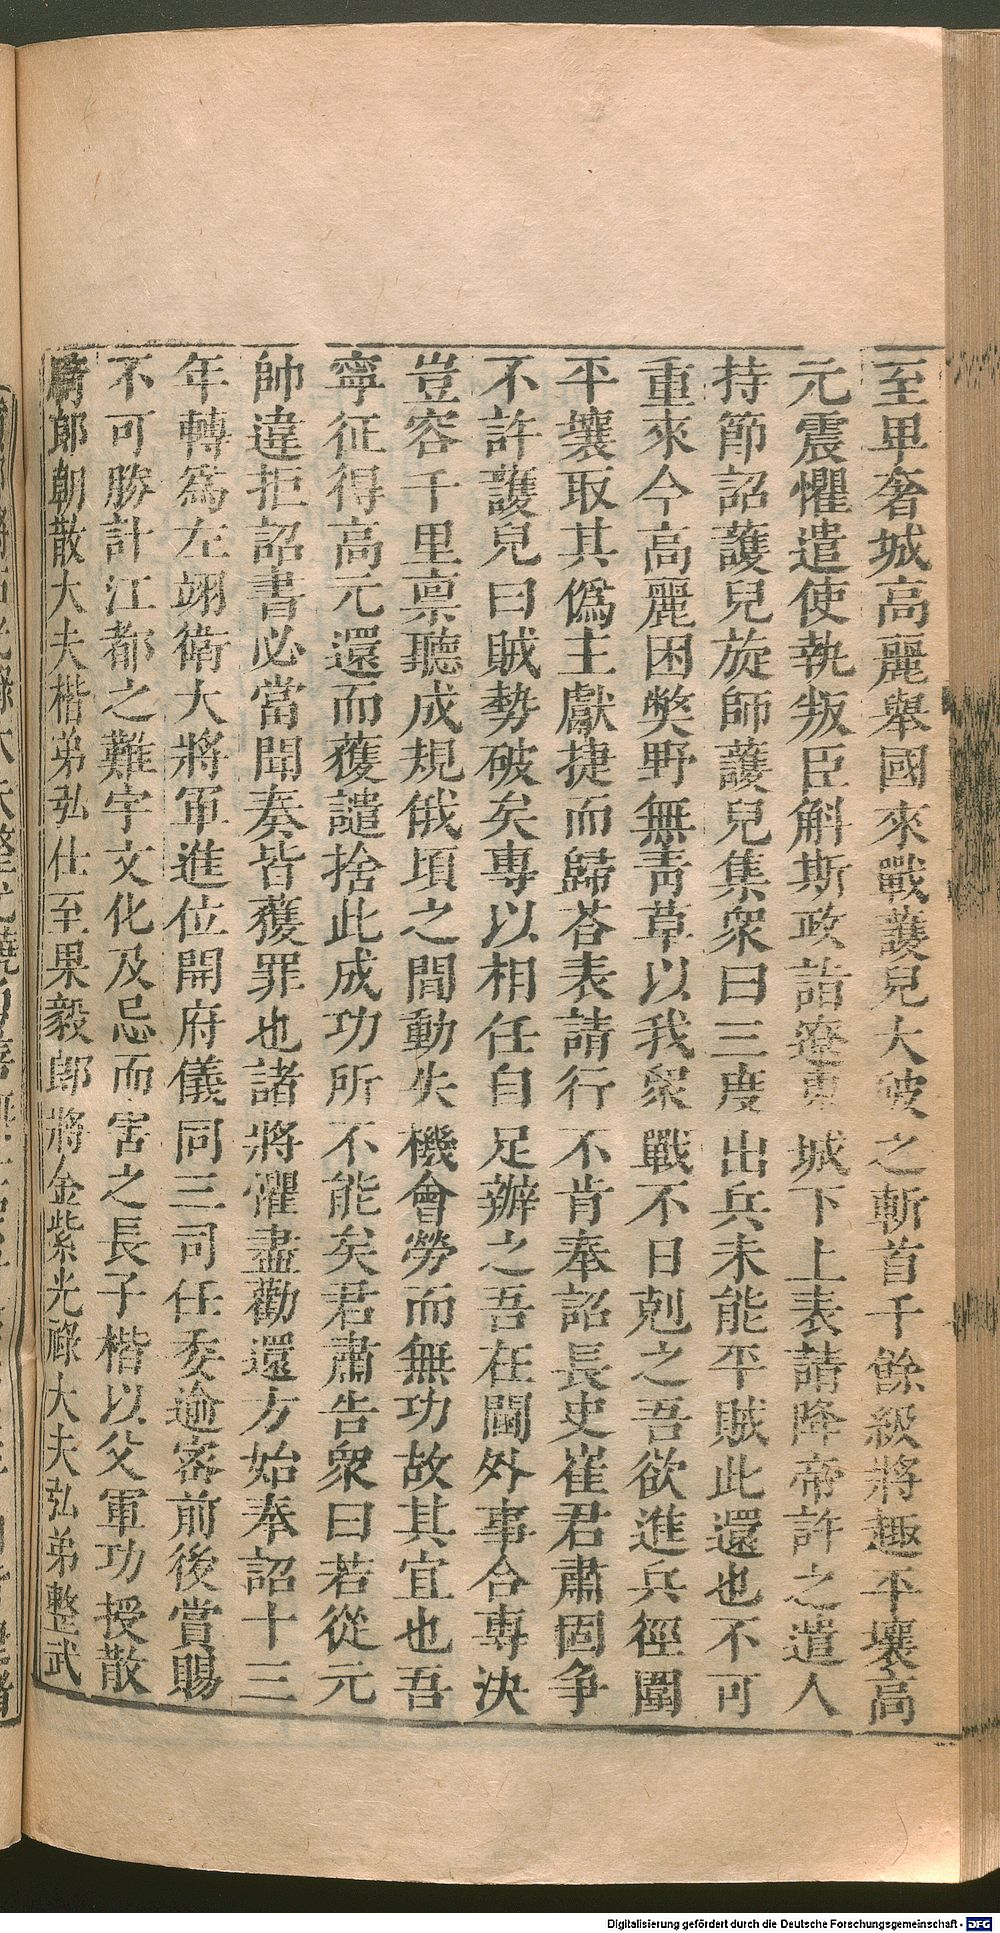 至畢奢城高麗舉國來戰護兒大破之斬首千餘級將趣平壤高
元震懼遣使執叛臣斛斯政詣遼東城下上表請降帝許之遣人
持節詔護兒旋師護兒集衆曰三度出兵未能平賊此還也不可
重來今高麗困獘野無靑草以我衆戰不日剋之吾欲進兵徑圍
平壤取其僞主獻捷而歸荅表請行不肯奉詔長史崔君肅固争
不許護兒曰賊勢破矣專以相任自足辦之吾在閫外事合專決
豈容千里禀聽成規俄頃之間動失機會勞而無功故其宜也吾
寧征得高元還而獲譴捨此成功所不能矣君肅告衆曰若從元
帥違拒詔書必當聞奏皆獲罪也諸將懼盡勸還方始奉詔十三
年轉爲左翊衛大將軍進位開府儀同三司任委逾密前後賞賜
不可勝計江都之難宇文化及忌而害之長子楷以父軍功授散
騎郎朝散大夫楷弟弘仕至果毅郎將金紫光祿大夫弘弟整武
Digitalisierung gefördert durch die Deutsche Forschungsgemeinschaft - DFG